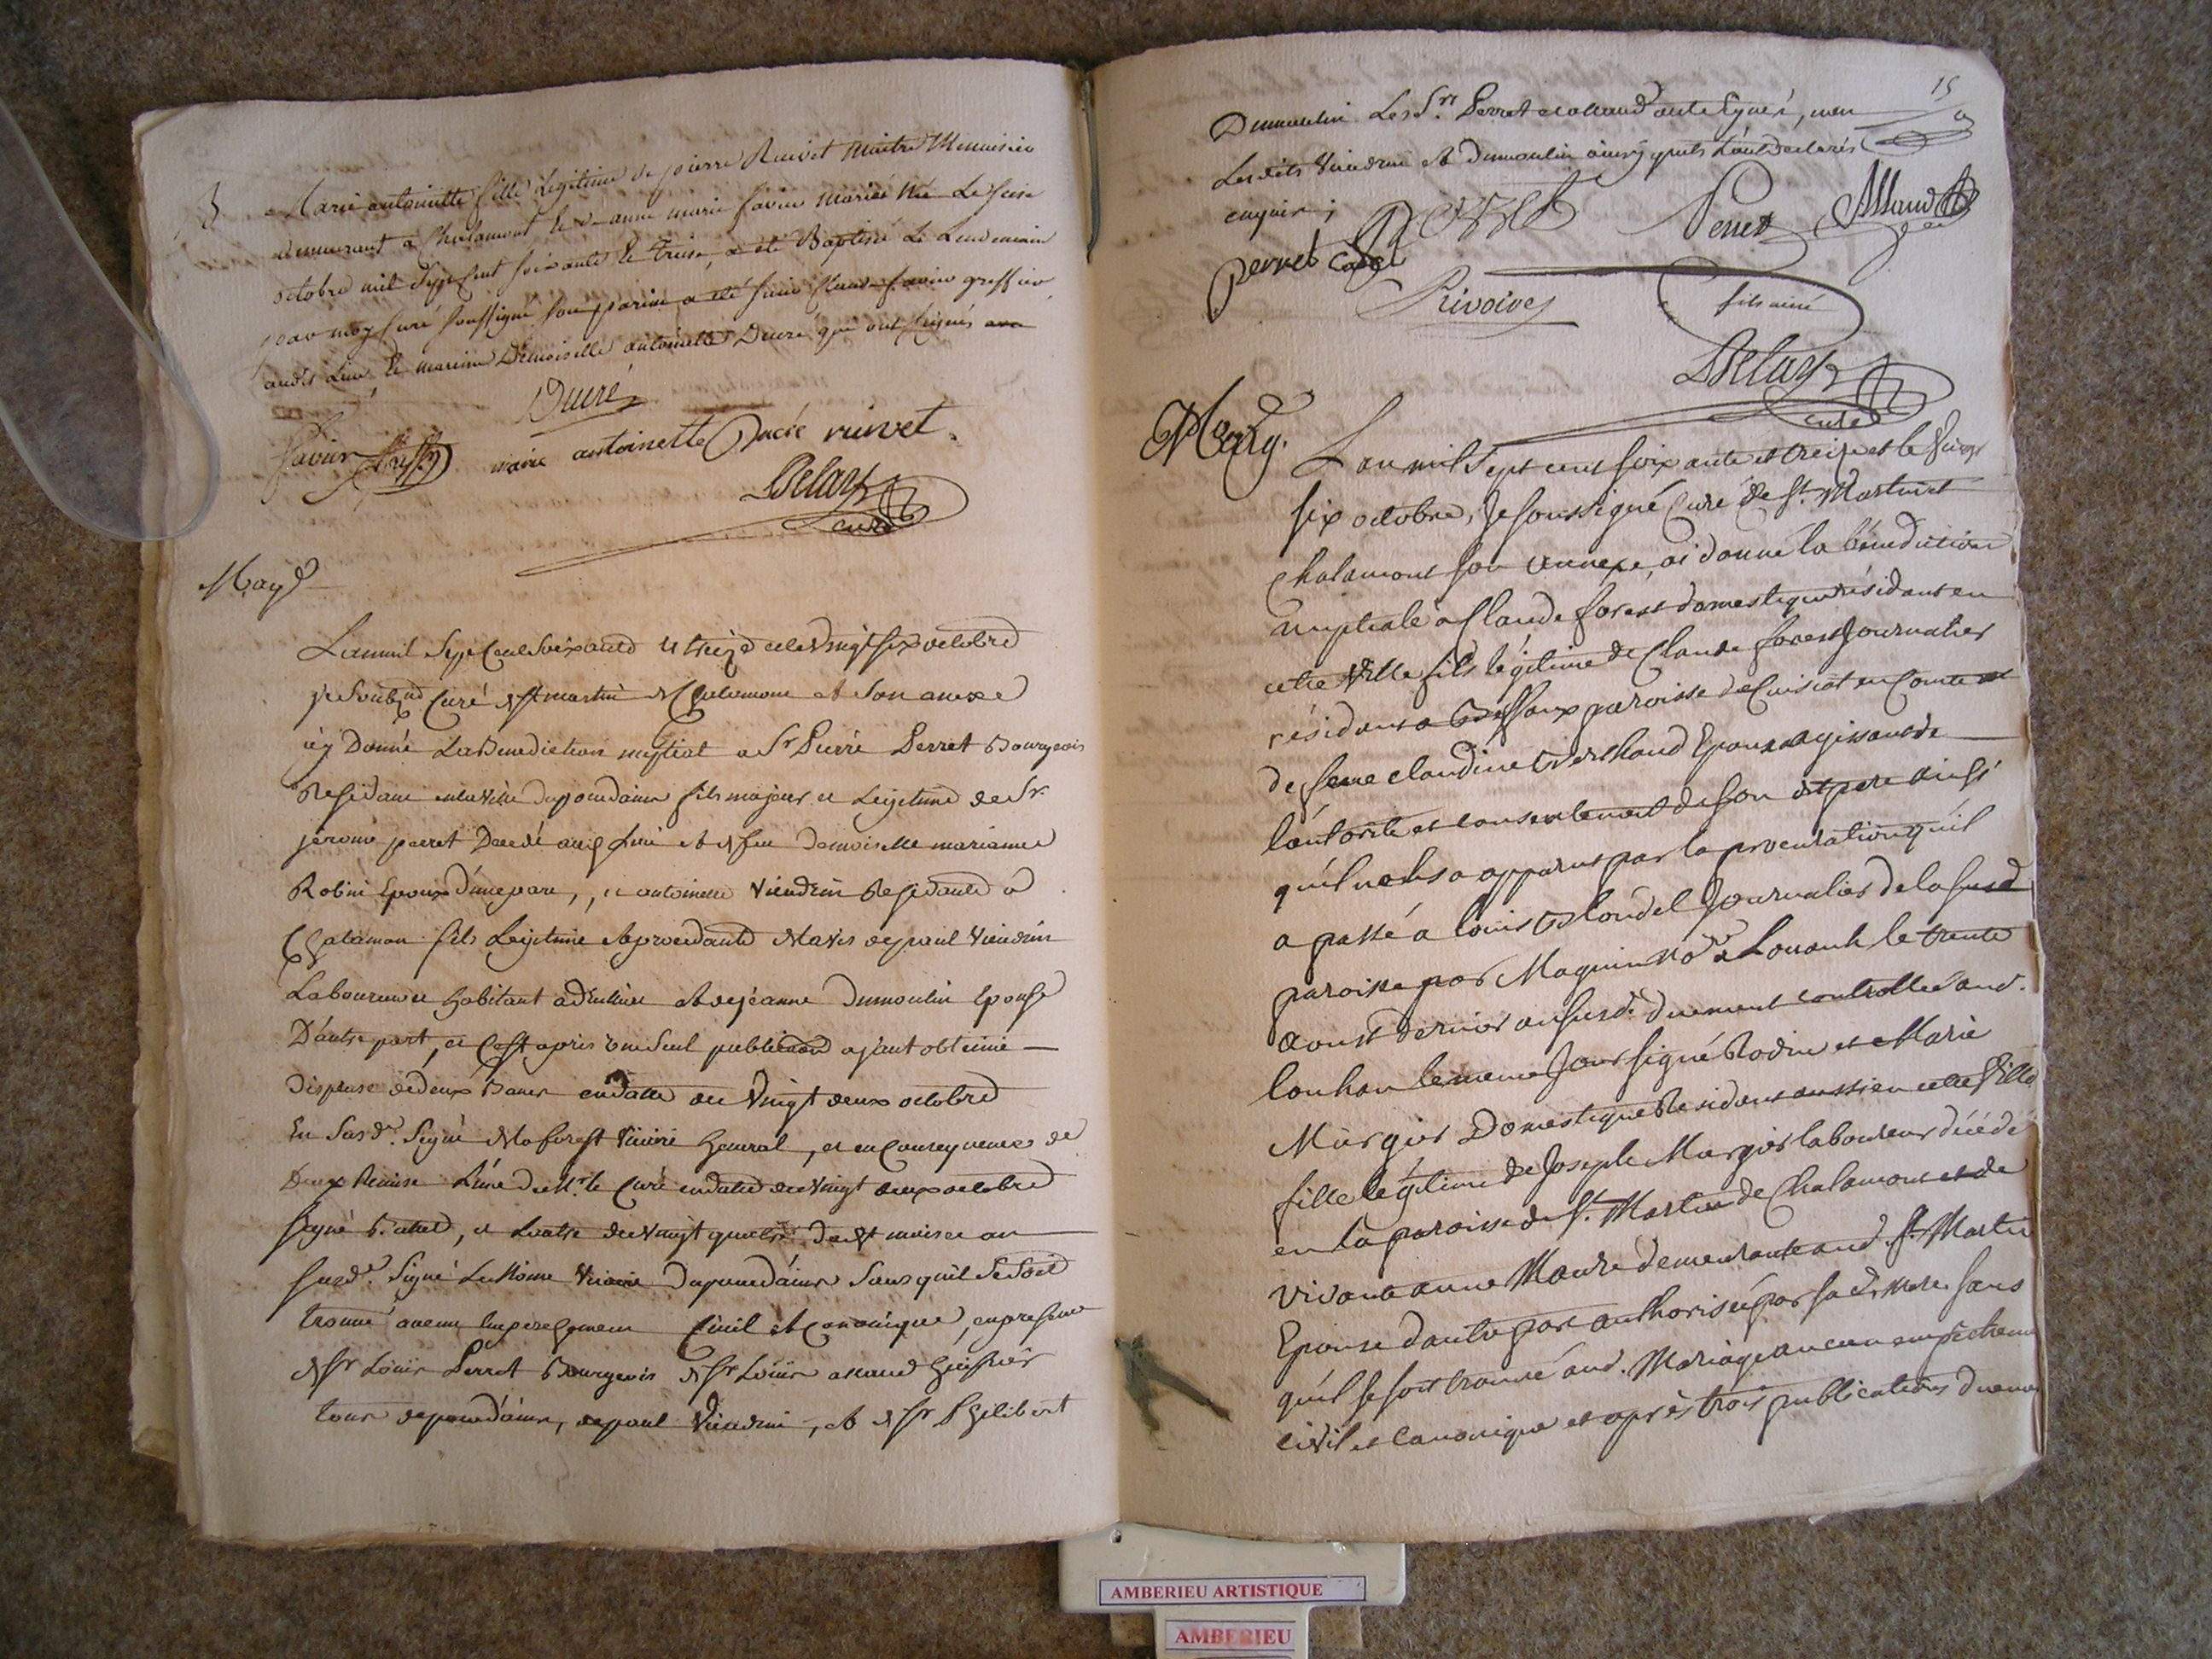 B
Marie antoinette fille Legitime de pierre Ruivet maitre Menuisier
demeurant a Chalamont et d. anne marie favier mariés née Le seise
octobre mil sept cent soixante et treise, a eté Baptisé Le Lendemain
par moy Curé soussigné son parrin a eté sieur Claude favier greffier
audit Lieu, et marine Demoiselle antoinette Ducré qui ont signés
Ducré
favier marie antoinette Ducré ruivet.
Delay
curé
May
L'anmil Sept Cent Soixante et treize et le Vingt six octobre
je Soub.né Curé de st martin de Chalamont et Son anexe
ay Donné La Benediction nuptial a Sr Pierre Perret Bourgeois
Residant en la Ville du pondain fils majeur et Legitime de Sr
jerome perret Decedé aud. Lieu et de feu Demoiselle marianne
Robin Epoux d'une part,, et antoinette Viendrin Residante a
Chalamon fils Legitime de paul Viendrin
Laboureur habitant a et de jeanne Dumoulin Eponse
D'autre part, et C'est apris une Seul publication ajant obtenüe
Dispense de deux Bancs en datte du Vingt deux octobre
En Susd. Signé De la forest Vicaire general, et en Consequence de
Deux Remise L'une de Mr. le Curé en datte du Vingt deux octobre
signé, et Lautre du Vingt quatre dud. mois et an
susd. Signé Vicaire du pondain Sans quil Se Soit
trouvé aucun Empechement Civil et Canonique, en presence
de Sr Loüis Perret Bourgeois de Sr Loüis allaud huissier
tous de pondain, de paul Viendrin, et de Sr Philibert
15
Dumoulin Les Srs. Perret et allaud ont Signés, non
Lesdits Viendrin et Dumoulin ainsy quils L'ont Declarés
enquis;
Perret Perret Allaud
perret cadet
Rivoire fils ainé
Delay
curé
Mariag.
L'an mil sept cent soixante et treize et le vingt
six octobre, Je soussigné Curé de St. Martin et
Chalamont son annexe, ai donné la bénédiction
nuptiale a Claude forest domestique résidant en
cette Ville fils légitime de Claude forest Journalier
résidant a paroisse de Cuisiat en Comté et
de feue claudine Berthaud Epoux agissant de
l'autorité et consentement de son dit pere ainsi
quil nous a apparus par la procuration quil
a passé a louis Blondel Journalier de la susd.
paroisse par Maguin No.re a Louanh le trente
aoust dernier an susd. duement controllée aud.
louhan le meme Jour signé Rodin et Marie
Murgier Domestique Residant aussi en cette Ville
fille légitime de Joseph Murgier laboureur décédé
en la paroisse de St. Martin de Chalamont et de
vivante anne Maure demeurante aud. St. Martin
Epouse d'autre part authorisée par sa d. Mere. sans
quil se soit trouvé aud. Mariage aucun empéchement
civil et canonique et après trois publications duement
AMBERIEU ARTISTIQUE
AMBERIEU